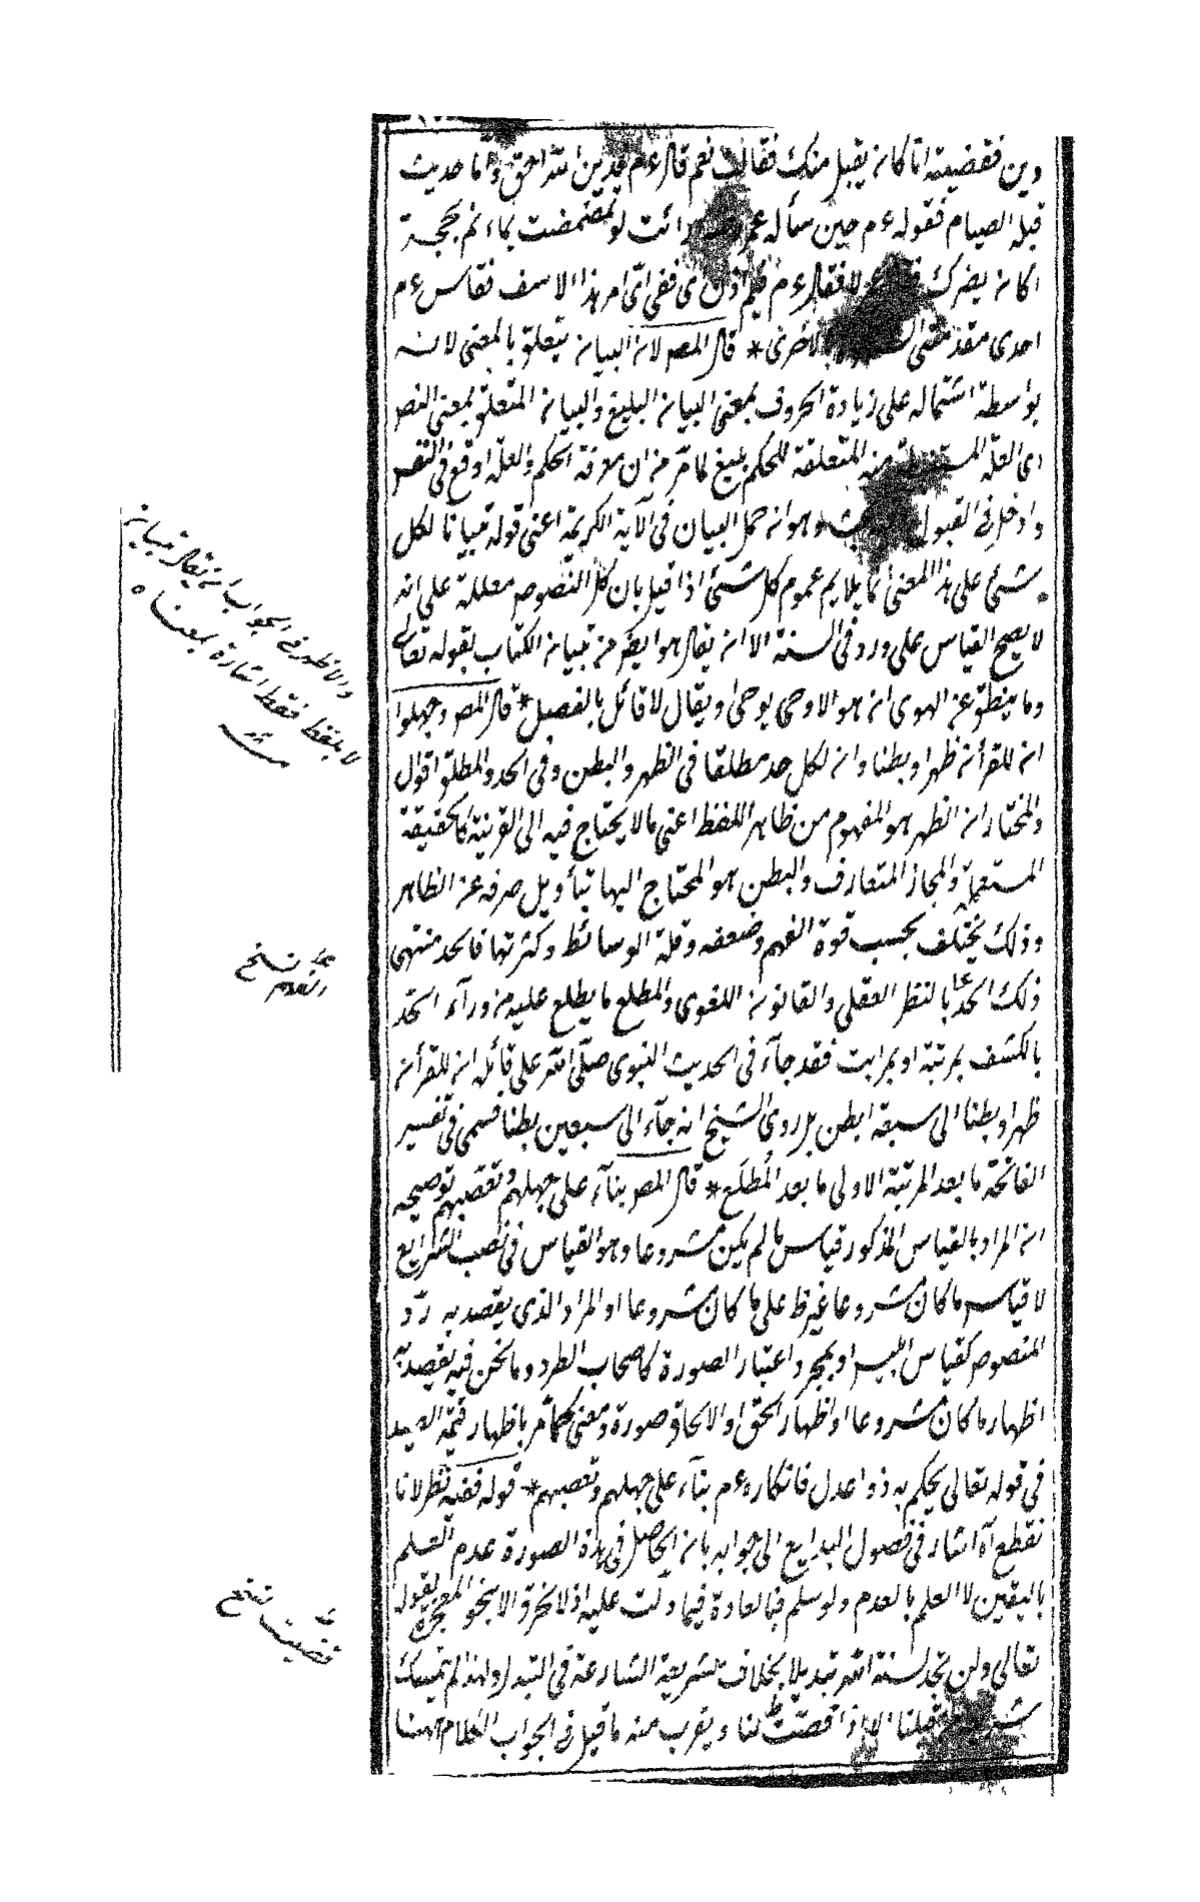 دين فقضيته اما كان يقبل منك فقالت نعم قال ءم فدين الله احق واما حديث
قبلة الصيام فقوله ءم حين سأله عمر ارائت لو تمضمضت بماء ثم مججته
اكان يضرك فقال لا فقال ءم ففيم اذن اى ففى اى امر هذا الاسف فقاس ءم
احدى مقدمتى بالاخرى * قال المص لان البيان يتعلق بالمعنى لانه
بواسطة اشتماله على زيادة الحروف بمعنى البيان البليغ والبيان المتعلق بمعنى النص
اى العلة المستنبطة منه المتعلقة للحكم بليغ لما مر من ان معرفة الحكم والعلة اوقع فى النفس
وادخل فى القبول وهو ان حمل البيان فى الآية الكريمة اعنى قوله تبيانا لكل
شئ على هذا المعنى انما يلايم عموم كل شئ اذا قيل بان كل النصوص معللة على انه
لا يصح القياس على ورود فى السنة الا ان يقال هو ايضا من تبيان الكتاب بقوله تعالى
وما ينطق عن الهوى ان هو الا وحى يوحى ويقال لا قائل بالفصل * قال المص وجهلوا
ان للقرآن ظهرا وبطنا وان لكل حد مطلقا فى الظهر والبطن وفى الحد والمطلق اقوال
والمختار ان الظهر هو المفهوم من ظاهر اللفظ اعنى ما لا يحتاج فيه الى القرينة كالحقيقة
المستعملة والمجاز المتعارف والبطن هو المحتاج اليها بتأويل صرفه عن الظاهر
وذلك يختلف بحسب قوة الفهم وضعفه وقلة الوسائط وكثرتها فالحد منتهى
ذلك الحد بالنظر العقلى والقانون اللغوى والمطلع ما يطلع عليه من ورآء الحد
بالكشف بمرتبة او بمراتب فقد جآء فى الحديث النبوى صلى الله على قائله ان للقرآن
ظهرا وبطنا الى سبعة ابطن بل روى الشيخ انه جآء الى سبعين بطنا فسمى فى تفسير
الفاتحة ما بعد المرتبة الاولى ما بعد المطلع * قال المص بنآء على جهلهم وتعصبهم توضيحه
ان المراد بالقياس المذكور قياس ما لم يكن مشروعا وهو القياس فى نصب الشرايع
لا قياس ما كان مشروعا غير ظ على ما كان مشروعا او المراد الذى يقصد به رد
المنصوص كقياس ابليس او بمجرد اعتبار الصورة كاصحاب الطرد وما نحن فيه يقصد به
اظهار ما كان مشروعا او اظهار الحق او الالحاق صورة ومعنى كما مر باظهار قيمة الصيد
فى قوله تعالى يحكم به ذوا عدل فانكاره ءم بنآء على جهلهم وتعصبهم * قوله ففيه نظر لانا
نقطع آه اشار فى فصول البدايع الى جوابه بان الحاصل فى هذه الصورة عدم العلم
باليقين لا العلم بالعدم ولو سلم فبالعادة فيما دلت عليه اذ لا تخرق الا بنحو المعجزة لقوله
تعالى ولن تجد لسنة الله تبديلا بخلاف شريعة الشارعة فى التبدل ولهذا لم يتمسك
بشريعة من قبلنا الا اذا قصت لنا ويقرب منه ما قيل فى الجواب الكلام ههنا
والاظهر فى الجواب ان يقال تبيان
لا بلفظ فقط اشارة بمعناه
منه
نسخ
العدم
نسخ
قضيت